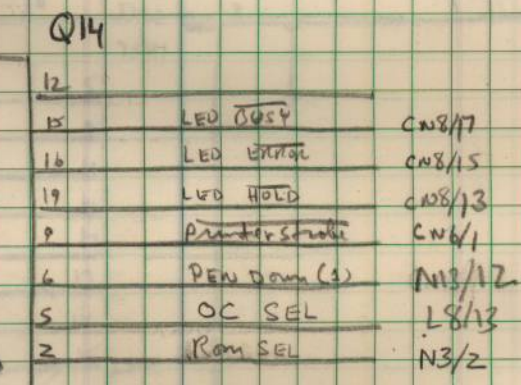 Q14
12
15 LED B̅U̅S̅Y̅ CN8/17
16 LED E̅R̅R̅O̅R̅ CN8/15
19 LED H̅O̅L̅D̅ CN8/13
9 P̅r̅i̅n̅t̅e̅r̅ ̅S̅t̅r̅o̅b̅e̅ CN6/1
6 PEN Down (1) N13/12
5 OC SEL L8/13
2 Rom SEL N3/2